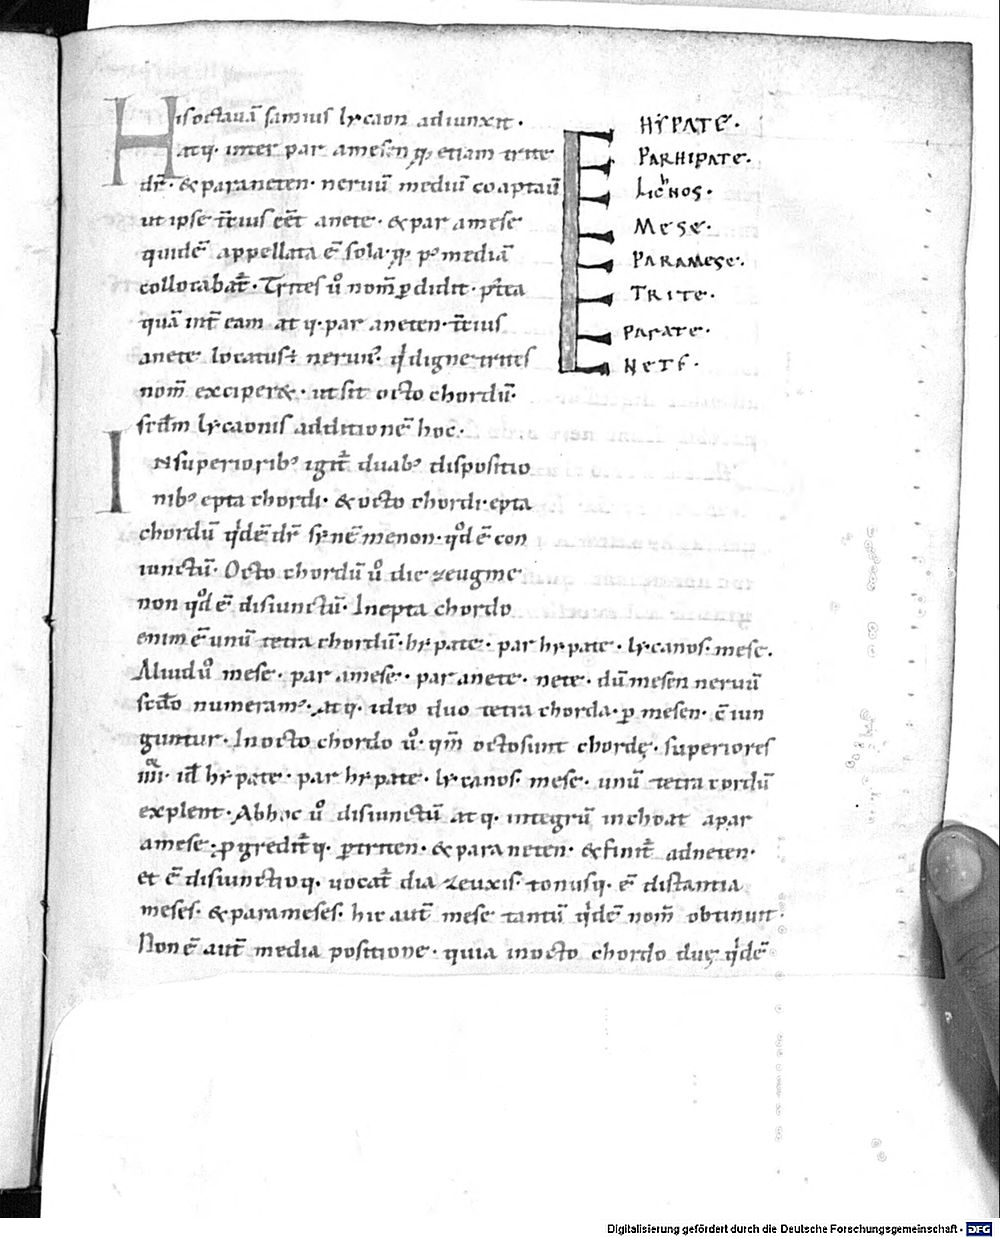 Hisoctauā samius lycaon adiunxit·
atq· inter par amesen q̨ etiam trite
dr̄· & paraneten· neruū mediū coaptaū
ut ipse t̄cius eēt anete· & par amese
quidē appellata ē sola· q̨ p᷒ mediā
collocabat̄· Trites ů nom̄ p̱didit· p̄tea
quā int̄ eam atq· par aneten· t̄cius
anete locatus· neruus digne trites
nom̄ exciper&· ut sit octo chordū·
scd̄m lycaonis additionē hoc·
INsuperiorib᷒ igit̄ duab᷒ dispositio
nib᷒ epta chordi· & octo chordi· epta
chordū q̇dē dr̄ synēmenon· qd̊ ē con
iunctū· Octo chordū ů diezeugme
non qd̊ ē disiunctū· Inepta chordo
enim ē unū tetra chordū· hypate· par hypate· lycanos· mese·
Aliud ů mese· par amese· par anete· nete· dū mesen neruū
scd̄o numeram᷒· atq· ideo duo tetra chorda· p̱ mesen· c̄iun
guntur· Inocto chordo ů· qm̄ octo sunt chordę· superiores
iiii· id̄ hypate· par hypate· lycanos· mese· unū tetra cordū
explent· Abhoc ů disiunctū atq· integrū inchoat apar
amese· p̱gredit̄q· p̱triten· & paraneten· & finit̄ adneten·
et ē disiunctioq· uocat̄ dia zeuxis· tonusq· ē distantia
meses· & parameses· hic aut̄ mese tantū q̇dē nom̄ obtinuit·
Non ē aut̄ media positione· quia inocto chordo duę q̇dē
HYPATE·
PARHIPATE·
LICHNOS·
MESE·
PARAMESE·
TRITE·
PARATE·
NETE·
Digitalisierung gefördert durch die Deutsche Forschungsgemeinschaft - DFG